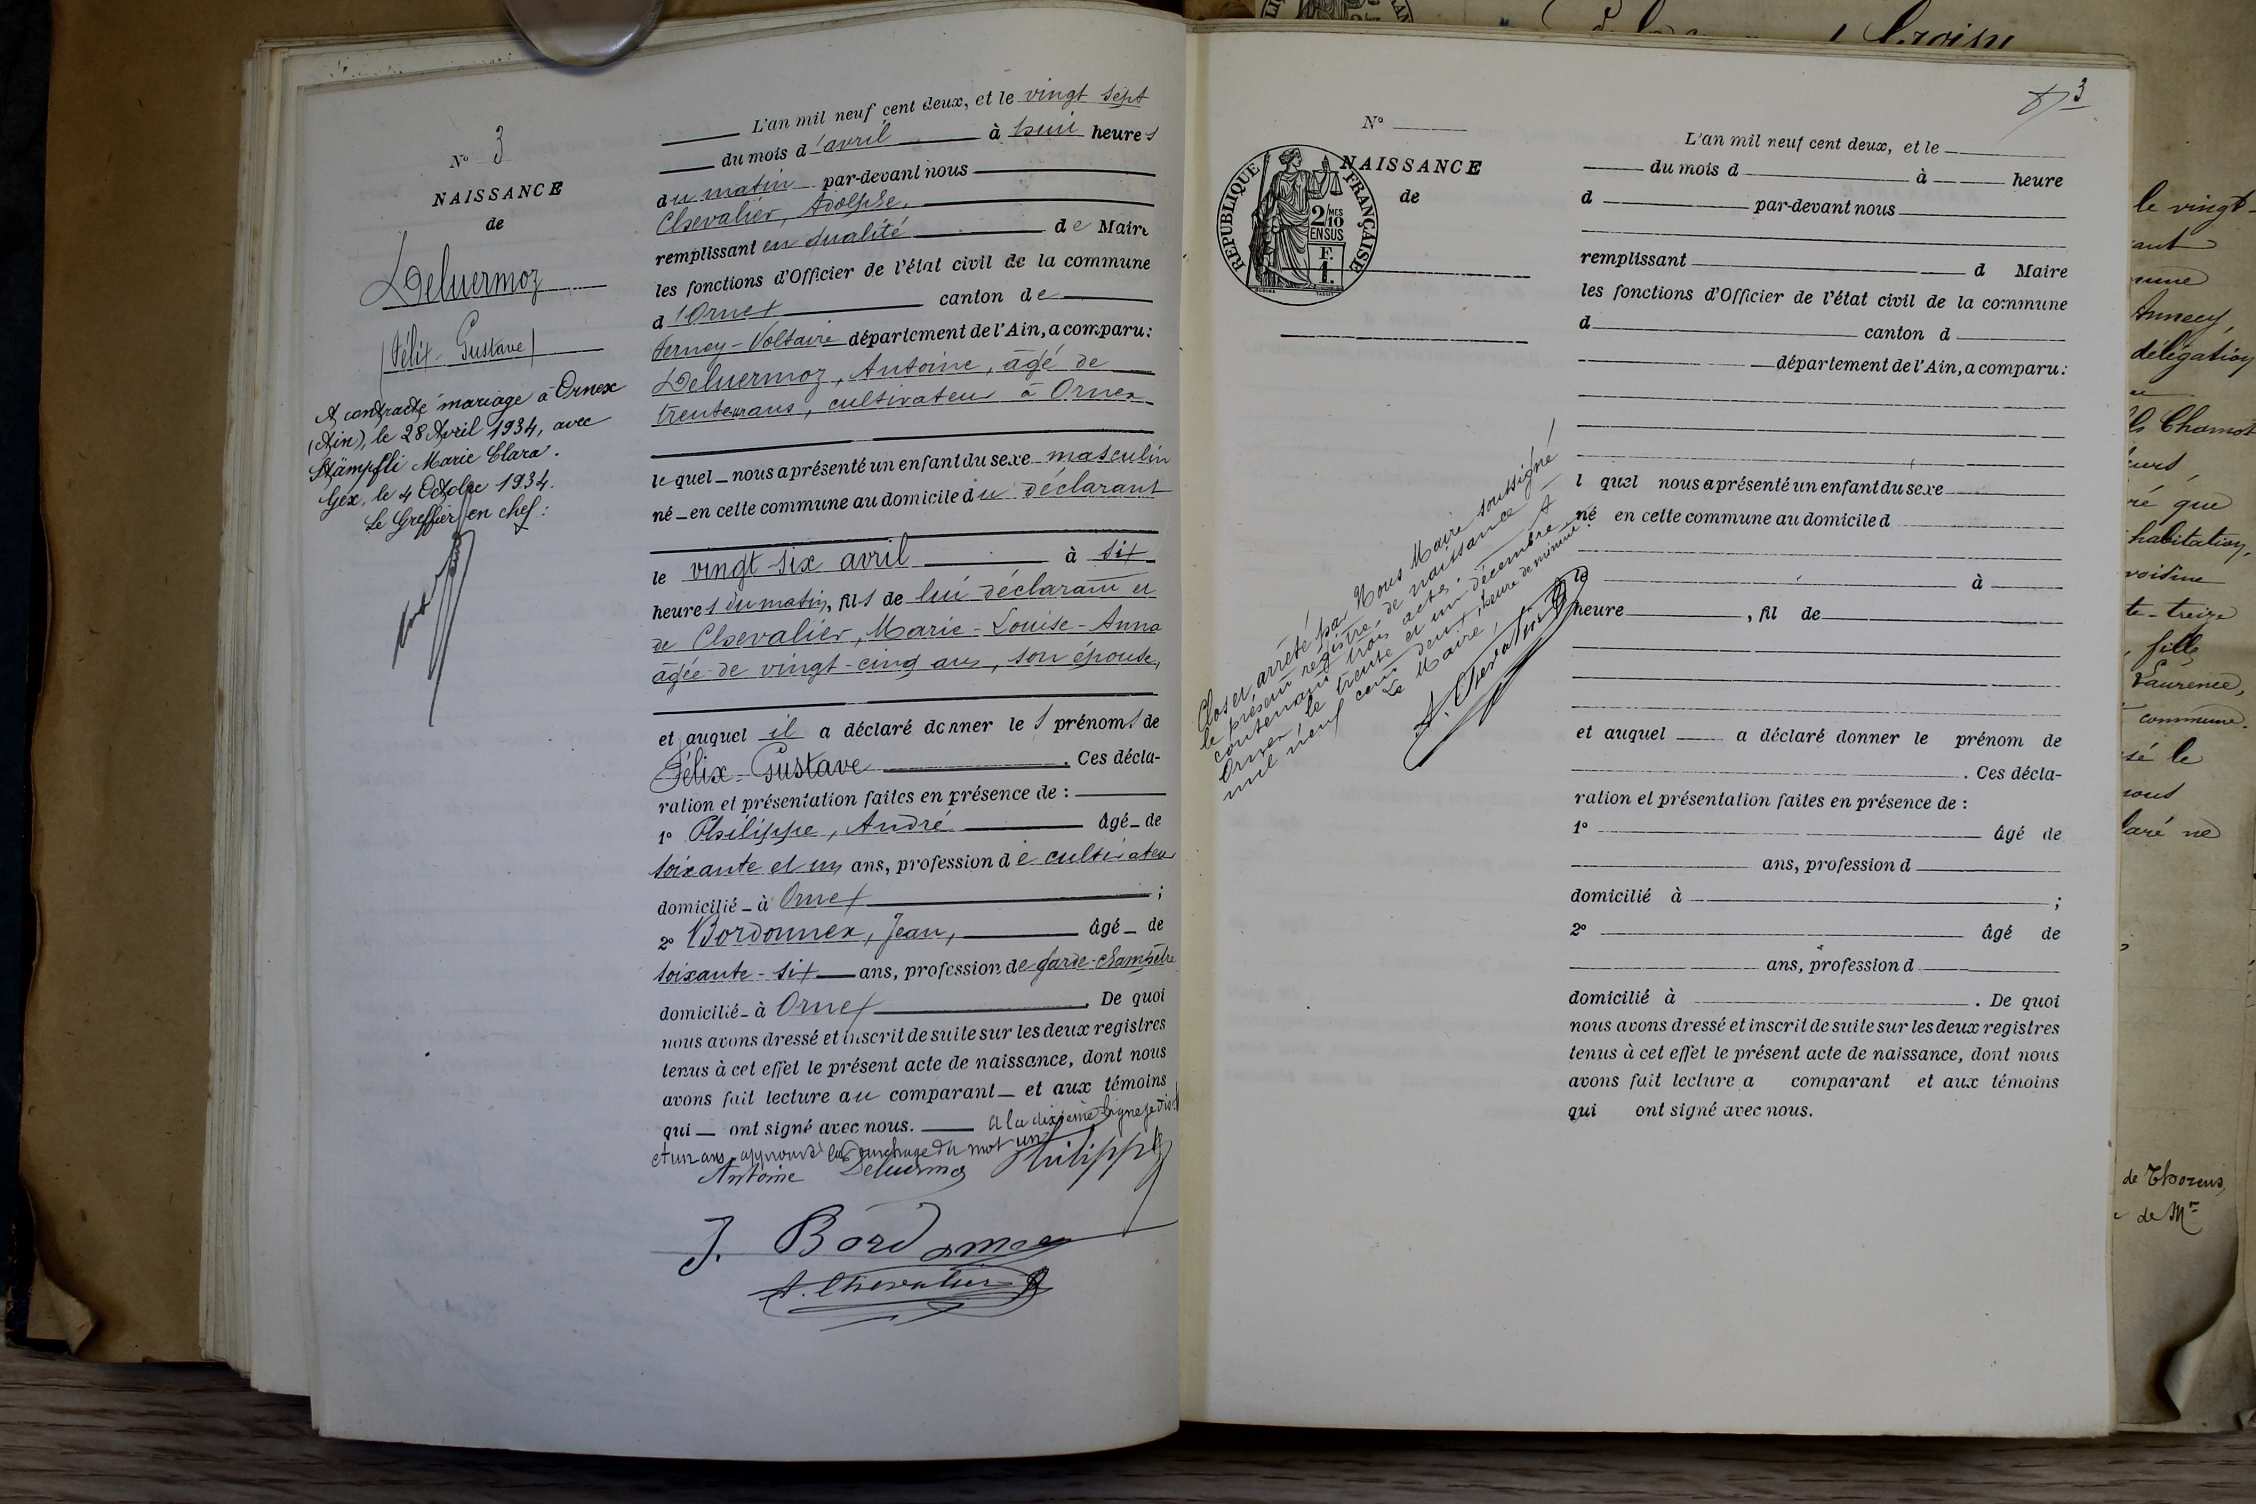 N° 3
NAISSANCE
de
Deluermoz
(Félix-Gustave)
A contracté mariage à Ornex
(Ain), le 28 Avril 1934, avec
Stämpfli Marie Clara.
Gex, le 4 Octobre 1934.
Le Greffier en chef:
L'an mil neuf cent deux, et le vingt sept
du mois d'avril à huit heures
du matin par-devant nous
Chevalier, Adolphe,
remplissant en qualité de Maire
les fonctions d'Officier de l'état civil de la commune
d'Ornex canton de
Ferney-Voltaire département de l'Ain, a comparu:
Deluermoz, Antoine, âgé de
trente ans, cultivateur à Ornex
lequel nous a présenté un enfant du sexe masculin
né en cette commune au domicile du déclarant
le vingt six avril à six
heures du matin, fils de lui déclarant et
de Chevalier, Marie-Louise-Anna
âgée de vingt-cinq ans, son épouse,
et auquel il a déclaré donner les prénoms de
Félix-Gustave. Ces décla-
ration et présentation faites en présence de:
1° Philippe, André âgé de
soixante et un ans, profession de cultivateur
domicilié à Ornex;
2° Bordonnex, Jean, âgé de
soixante-six ans, profession de garde-champêtre
domicilié à Ornex. De quoi
nous avons dressé et inscrit de suite sur les deux registres
tenus à cet effet le présent acte de naissance, dont nous
avons fait lecture au comparant et aux témoins
qui ont signé avec nous. A la dixième ligne je dis
et un ans approuvé la surcharge du mot un
Antoine Deluermoz Philippe
J. Bordonnex
A. Chevalier
3
N°
NAISSANCE
de
RÉPUBLIQUE FRANÇAISE
2/10MES
EN SUS
F.
1.
Clos et arrêté par Nous Maire soussigné
le présent registre de naissance
contenant trois actes.
Ornex, le trente et un décembre
mil neuf cent deux, heure de minuit.
Le Maire,
A. Chevalier
L'an mil neuf cent deux, et le
du mois d à heure
d par-devant nous
remplissant d Maire
les fonctions d'Officier de l'état civil de la commune
d canton d
département de l'Ain, a comparu:
l quel nous a présenté un enfant du sexe
né en cette commune au domicile d
le à
heure, fil de
et auquel a déclaré donner le prénom de
. Ces décla-
ration et présentation faites en présence de:
1° âgé de
ans, profession d
domicilié à ;
2° âgé de
ans, profession d
domicilié à . De quoi
nous avons dressé et inscrit de suite sur les deux registres
tenus à cet effet le présent acte de naissance, dont nous
avons fait lecture a comparant et aux témoins
qui ont signé avec nous.
le vingt-
Annecy,
délégation
Chamot
que
habitation,
voisine
te-treize
fille
Laurence,
commune.
sé le
nous
laré ne
de Thorens,
de Mr